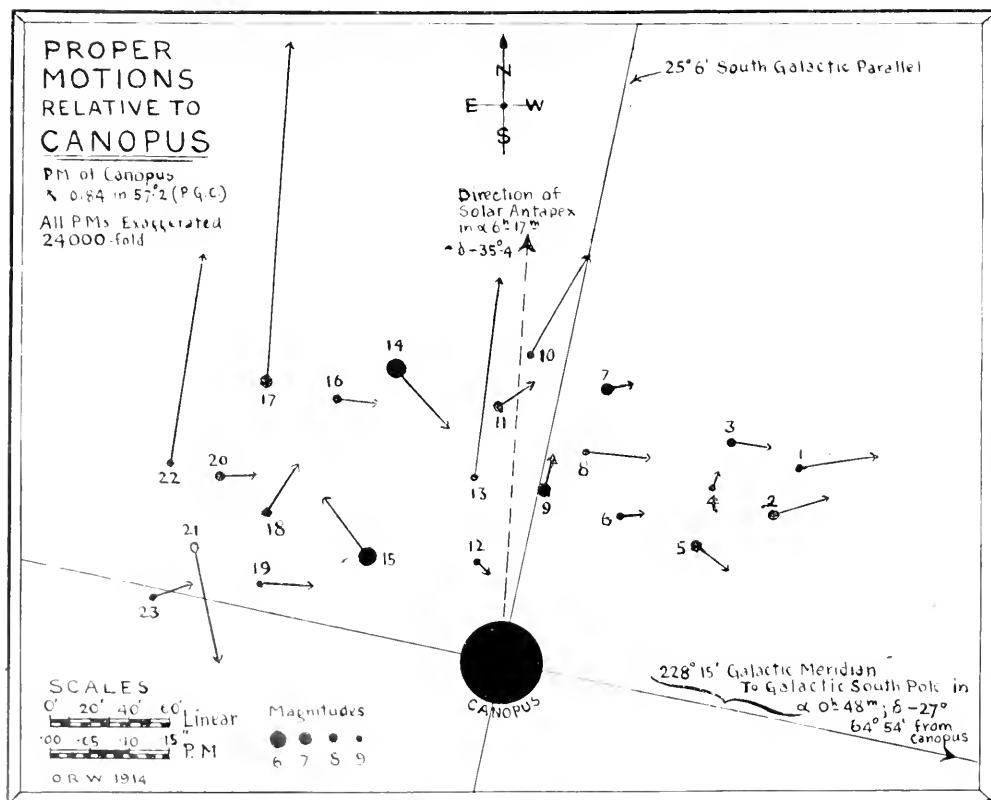 PROPER
MOTIONS
RELATIVE TO
CANOPUS
PM of Canopus
↖ 0.84 in 57°.2 (P.G.C.)
All P.Ms Exaggerated
24000-fold
N
E W
S
25° 6' South Galactic Parallel
Direction of
Solar Antapex
in α 6ʰ 17ᵐ
δ -35°.4
14
10
17
16
11
7
3
1
22
20
13
8
4
2
18
9
6
21
15
12
5
19
23
CANOPUS
228° 15' Galactic Meridian
To Galactic South Pole in
α 0ʰ 48ᵐ; δ -27°
64° 54' from
Canopus
SCALES
0' 20' 40' 60' Linear
.00 .05 .10 .15" P.M
Magnitudes
6 7 8 9
O R W 1914